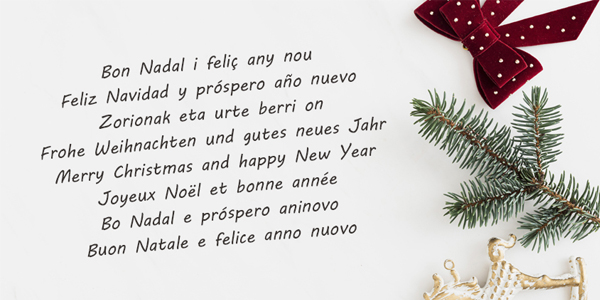 Bon Nadal i feliç any nou
Feliz Navidad y próspero año nuevo
Zorionak eta urte berri on
Frohe Weihnachten und gutes neues Jahr
Merry Christmas and happy New Year
Joyeux Noël et bonne année
Bo Nadal e próspero aninovo
Buon Natale e felice anno nuovo